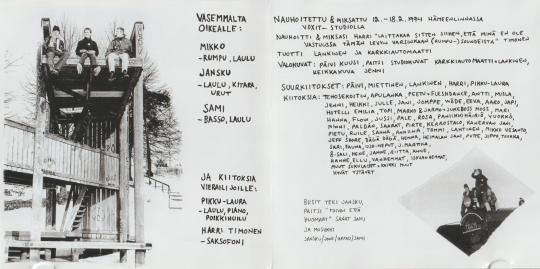 VASEMMALTA
OIKEALLE:
MIKKO
-RUMPU, LAULU
JANSKU
-LAULU, KITARA,
URUT
SAMI
-BASSO, LAULU
JA KIITOKSIA
VIERAILIJOILLE:
PIKKU-LAURA
-LAULU, PIANO,
POIKKIHUILU
HARRI TIMONEN
-SAKSOFONI
NAUHOITETTU & MIKSATTU 12.-18.2. 1994 HÄMEENLINNASSA
VOXIT-STUDIOLLA
NAUHOITTI & MIKSASI HARRI "LAITTAKAA SITTEN SIIHEN, ETTÄ MINÄ EN OLE
VASTUUSSA TÄMÄN LEVYN VARSINKAAN (RUMPU-) SOUNDEISTA" TIMONEN
TUOTTI LANKINEN JA KARKKIAUTOMAATTI
VALOKUVAT: PÄIVI KUUSI, PAITSI STUDIOKUVAT KARKKIAUTOMAATTI & LANKINEN,
KEIKKAKUVA JENNI
SUURKIITOKSET: PÄIVI, MIETTINEN, LANKINEN, HARRI, PIKKU-LAURA
KIITOKSIA: TEHOSEKOITIN, APULANTA, PEETU & FLESHDANCE, ANTTI, MIILA,
JENNI, HEIKKI, JULLE, JANI, JOMPPE, WÄDE, EEVA, AARO, JAPI,
HOTELLI EMILIA, TOPI, MARKO & JARMO & JUKEBOX MOSS, MARI
HANNA, FLOW, JUSSI, PALE, ROSA, PANIIKKIHÄIRIÖ, VUOKKO,
MINNI, PALDÁN, SAARAT, PIRTE, KERROSTALO, KANERVAN JANI,
PIETU, RUILE, SANNA, ANNIINA, TOMMI, LAHTINEN, MIKKO VESANTO,
JEFF SOARE, DÄGÄ DÄGÄ, HENNA, HEIMALAN JANI, PUTTE, JIPPO, TUUKKA,
SARI, FAUNA, UJO-NEPUT, J. MARTTKA,
B-SALI, HENE, JANNE, RIITTA, ANNE,
HANNE, ELLU, VANHEMMAT, ISOVANHEMMAT,
MUUT SUKULAISET & KAIKKI MUUT
HYVÄT YSTÄVÄT
BIISIT TEKI JANSKU,
PAITSI "TOIVON ETTÄ
HUOMAAT" SANAT SAMI
JA MUSIIKKI
JANSKU/SAMI